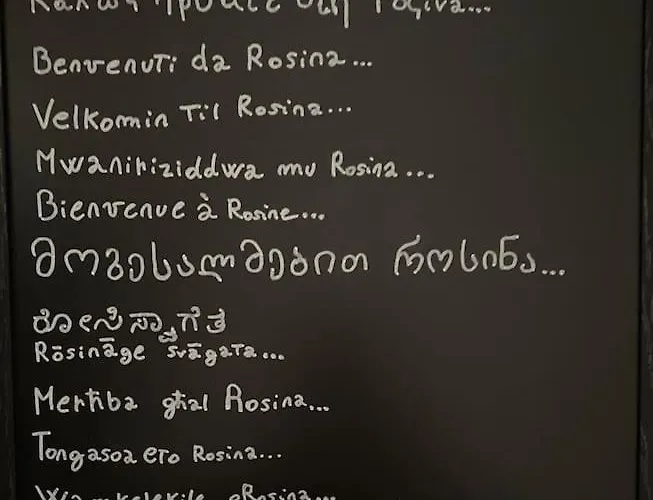 Benvenuti da Rosina...
Velkomin Til Rosina...
Mwaniriziddwa mu Rosina...
Bienvenue à Rosine...
მოგესალმებით როსინა...
Rōsināge svāgata...
Merħba għal Rosina...
Tongasoa eto Rosina...
eRosina...